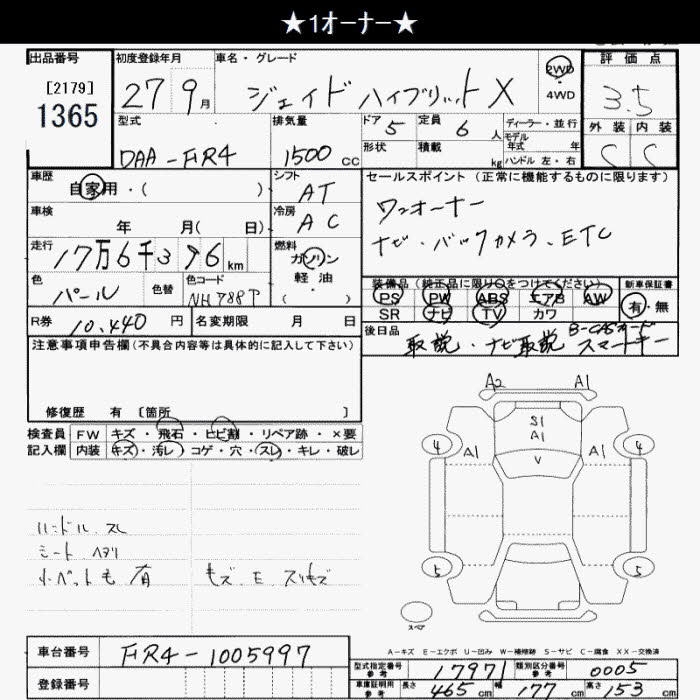 ★1オーナー★
出品番号 初度登録年月 車名・グレード 評価点
[2179]
1365
27 9月 ジェイド ハイブリット X 2WD 4WD 3.5
型式 排気量 ドア 5 定員 6人 ディーラー・並行 外装 内装
DAA-FR4 1500cc 形状 積載 kg モデル年式 年 ハンドル 左・右 C C
車歴 自家用・( ) シフト AT セールスポイント (正常に機能するものに限ります)
車検 年 月( 日) 冷房 AC ワンオーナー
ナビ・バックカメラ、ETC
走行 17万6千396km 燃料 ガソリン 軽油・( )
色 パール 色替 色コード NH788P 装備品(純正品に限り○をつけてください) 新車保証書
PS PW ABS エアB AW 有・無
SR ナビ TV カワ
R券 10,440円 名変期限 月 日 後日品 B-CASカード
取説・ナビ取説 スマートキー
注意事項申告欄(不具合内容等は具体的に記入して下さい)
修復歴 有 [箇所 ]
検査員 FW キズ・飛石・ヒビ割・リペア跡・×要
記入欄 内装 キズ・汚レ・コゲ・穴・スレ・キレ・破レ
A2 A1
S1
A1
4 A1 V A1 4
ハンドル スレ
シート ヘタリ
有 キズ、E、スリキズ
5 5
スペア
A-キズ E-エクボ U-凹み W-補修跡 S-サビ C-腐食 XX-交換済
車台番号 FR4-1005997
型式指定番号 参考 17971 類別区分番号 参考 0005
登録番号
車庫証明用 参考 長さ 465cm 幅 177cm 高さ 153cm